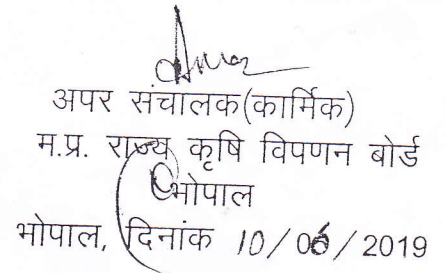 अपर संचालक(कार्मिक)
म.प्र. राज्य कृषि विपणन बोर्ड
भोपाल
भोपाल, दिनांक 10/06/2019